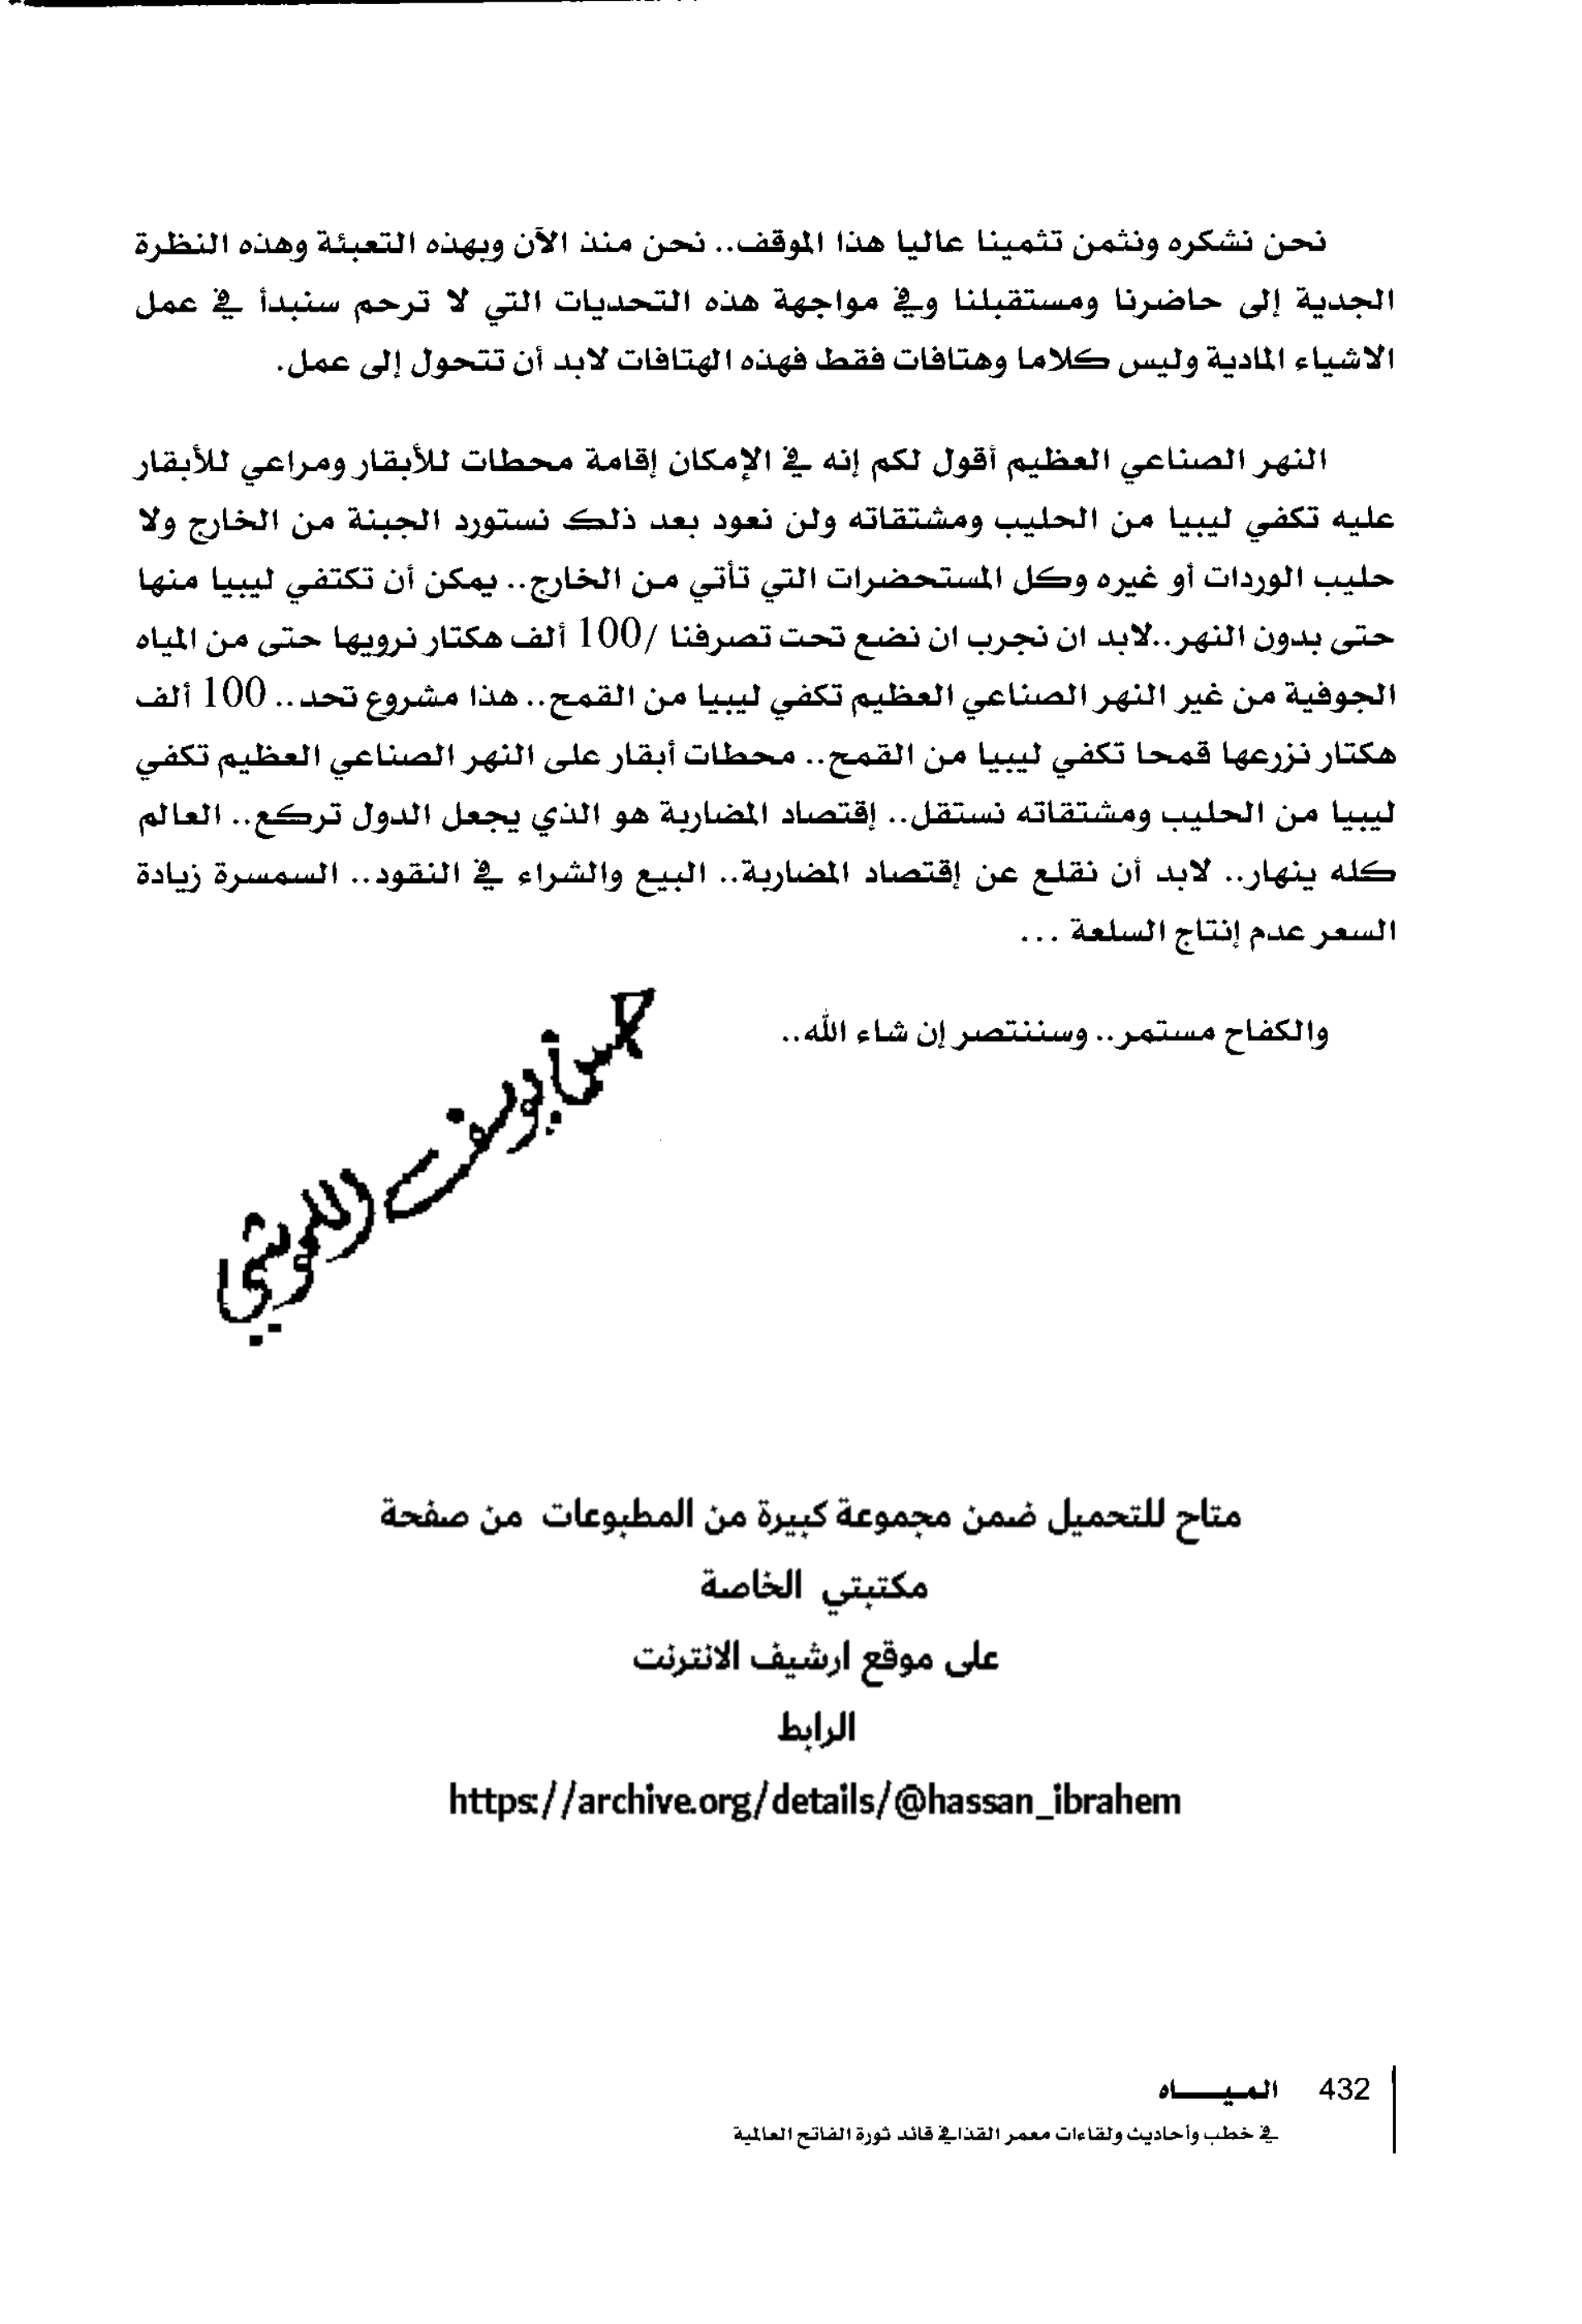 نحن نشكره ونثمن تثمينا عاليا هذا الموقف.. نحن منذ الآن وبهذه التعبئة وهذه النظرة
الجدية إلى حاضرنا ومستقبلنا وفي مواجهة هذه التحديات التي لا ترحم سنبدأ في عمل
الاشياء المادية وليس كلاما وهتافات فقط فهذه الهتافات لابد أن تتحول إلى عمل.
النهر الصناعي العظيم أقول لكم إنه في الإمكان إقامة محطات للأبقار ومراعي للأبقار
عليه تكفي ليبيا من الحليب ومشتقاته ولن نعود بعد ذلك نستورد الجبنة من الخارج ولا
حليب الوردات أو غيره وكل المستحضرات التي تأتي من الخارج.. يمكن أن تكتفي ليبيا منها
حتى بدون النهر..لابد ان نجرب ان نضع تحت تصرفنا /100 ألف هكتار نرويها حتى من المياه
الجوفية من غير النهر الصناعي العظيم تكفي ليبيا من القمح.. هذا مشروع تحد.. 100 ألف
هكتار نزرعها قمحا تكفي ليبيا من القمح.. محطات أبقار على النهر الصناعي العظيم تكفي
ليبيا من الحليب ومشتقاته نستقل.. إقتصاد المضاربة هو الذي يجعل الدول تركع.. العالم
كله ينهار.. لابد أن نقلع عن إقتصاد المضاربة.. البيع والشراء في النقود.. السمسرة زيادة
السعر عدم إنتاج السلعة ...
والكفاح مستمر.. وسننتصر إن شاء الله..
متاح للتحميل ضمن مجموعة كبيرة من المطبوعات من صفحة
مكتبتي الخاصة
على موقع ارشيف الانترنت
الرابط
https://archive.org/details/@hassan_ibrahem
432 الميـــاه
في خطب وأحاديث ولقاءات معمر القذافي قائد ثورة الفاتح العالمية